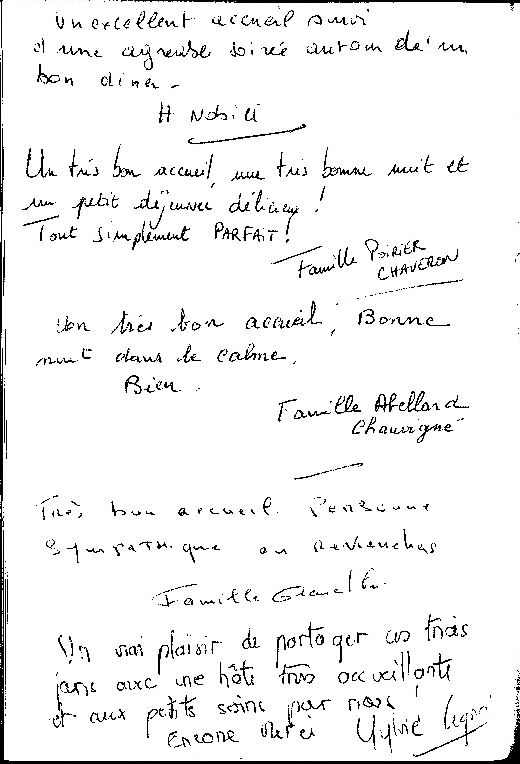 Un excellent accueil suivi
d'une agreable soirée autour de'un
bon diner.
H Nobili
Un très bon accueil, une très bonne nuit et
un petit déjeuner délicieux!
Tout simplement PARFAIT!
Famille POIRIER
CHAVERON
Un très bon accueil, Bonne
nuit dans le calme.
Bien.
Famille Abellard
Chauvigné
Très bon accueil. Personne
sympathique on reviendras
Famille
Un vrai plaisir de partager ces trois
jours avec une hôte très accueillante
et aux petits soins pour nous!
Encore Merci Sylvie